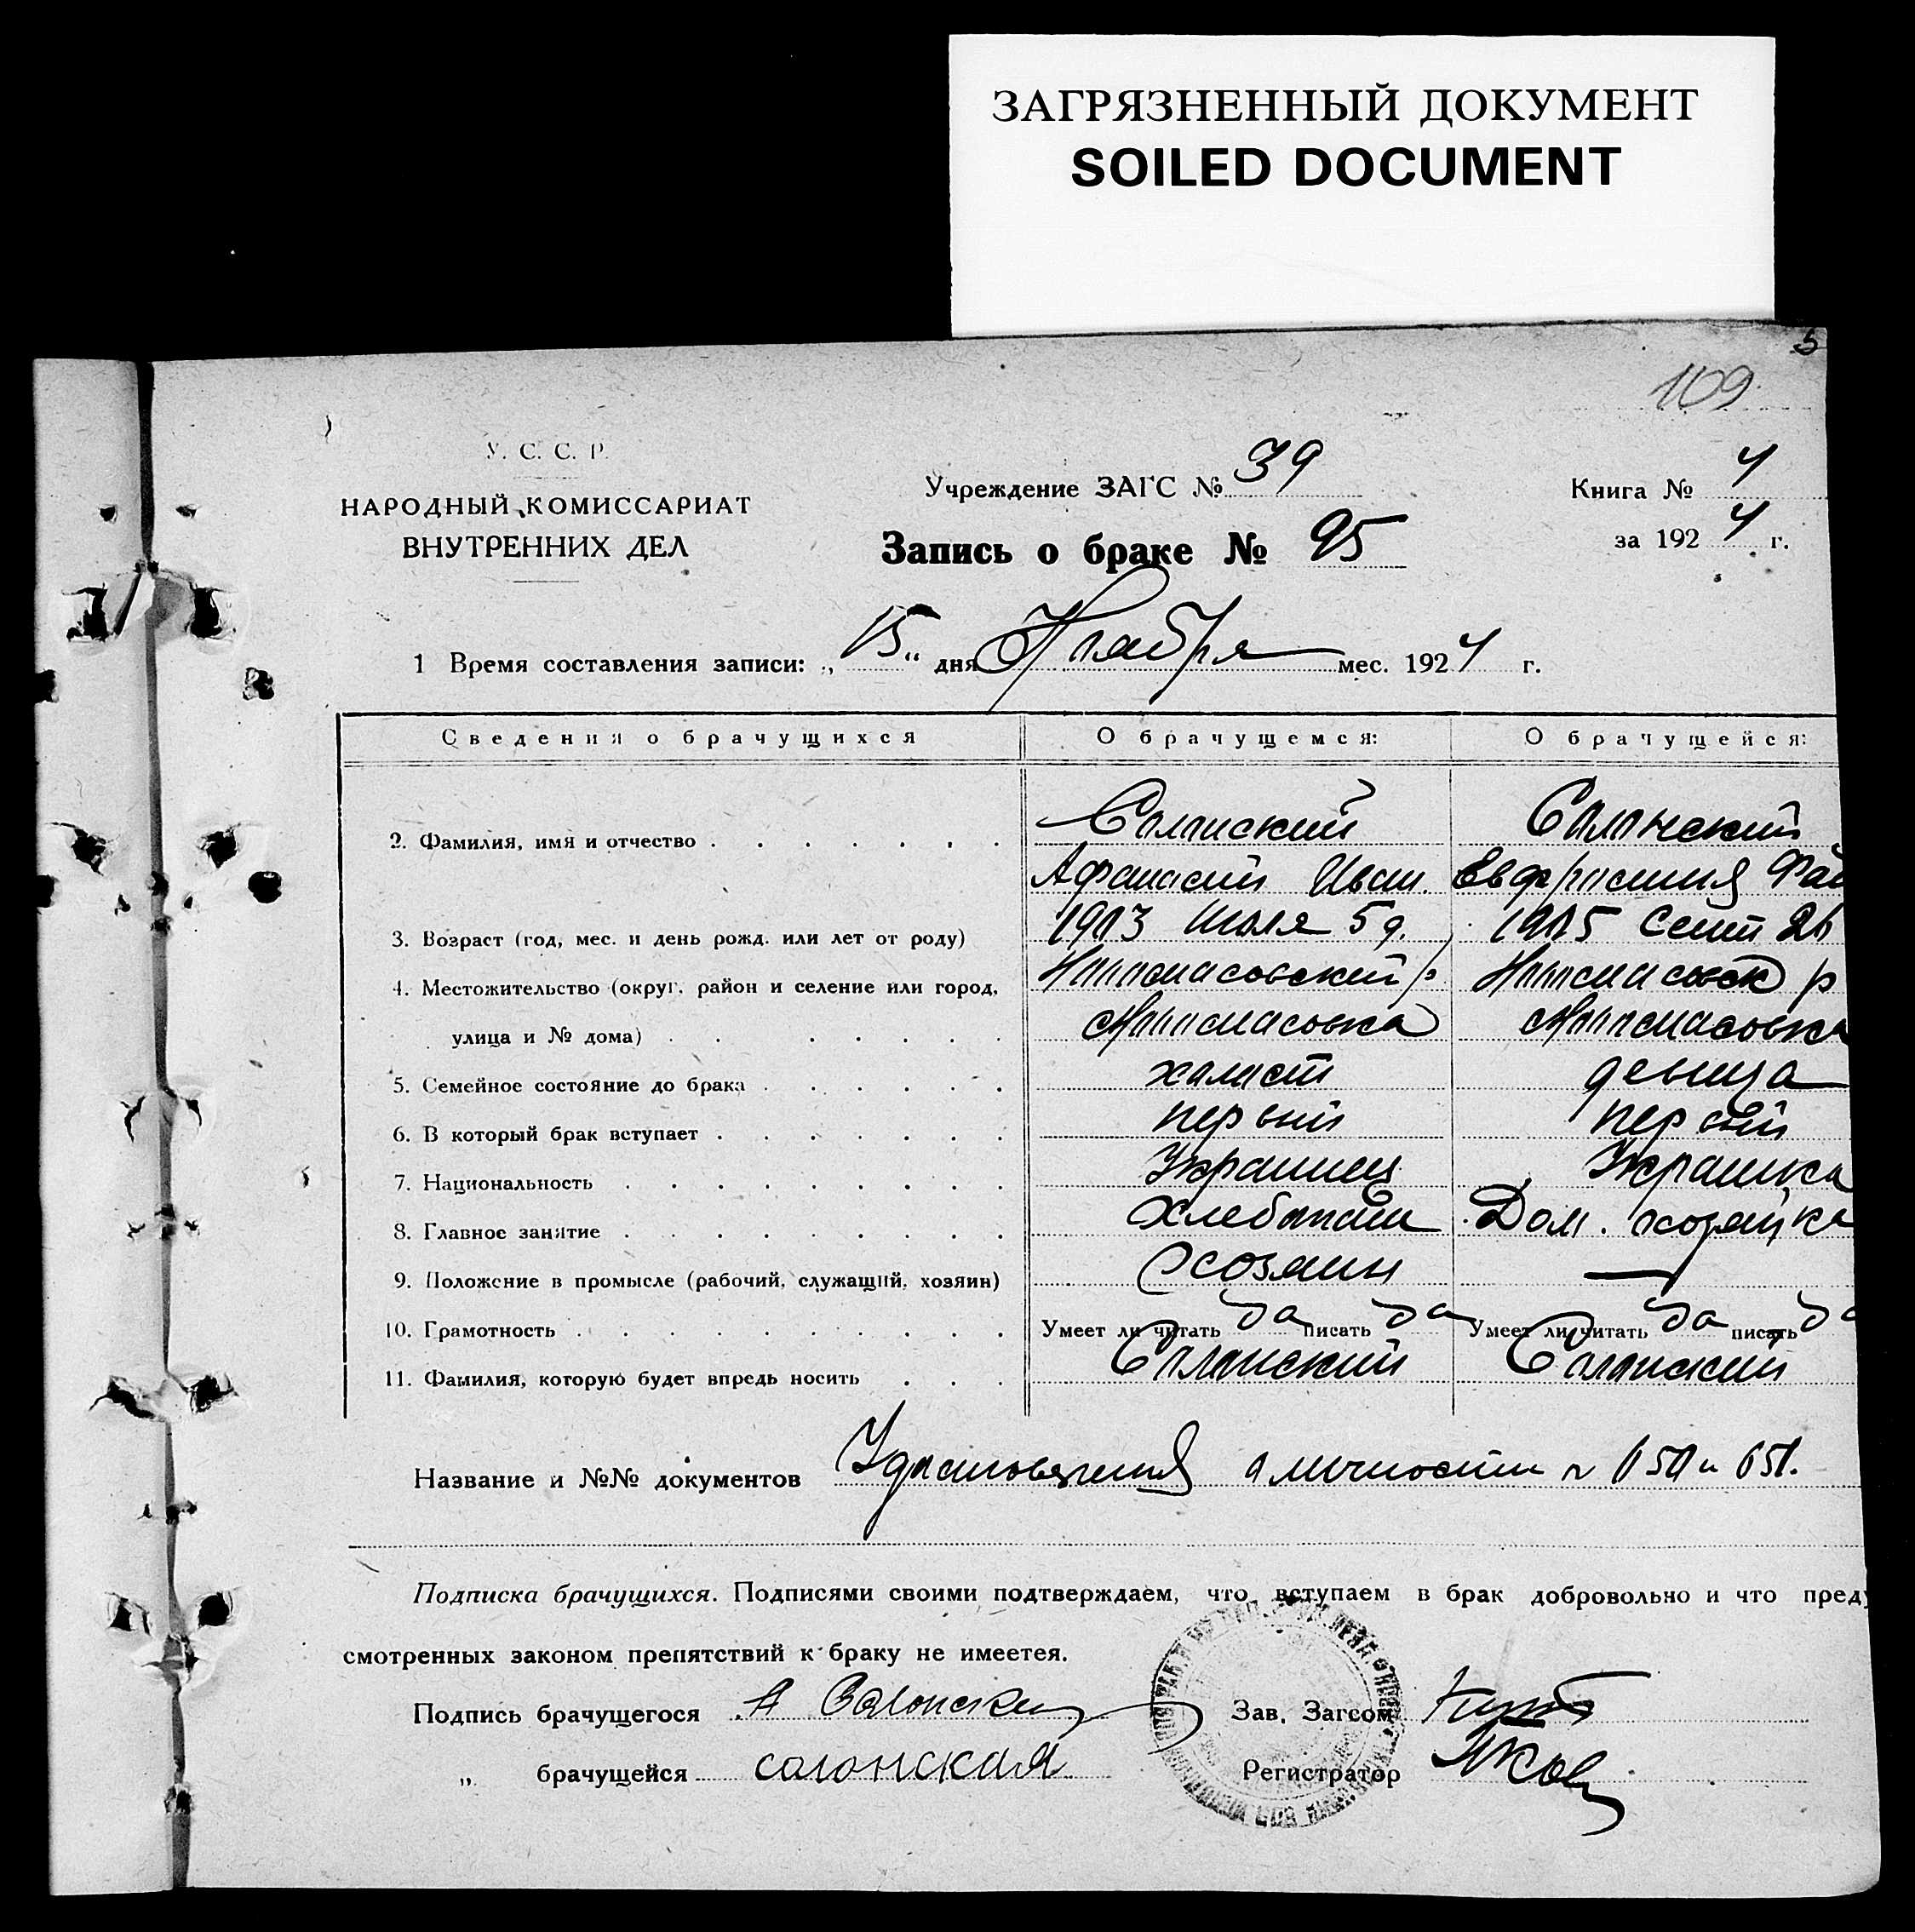 ЗАГРЯЗНЕННЫЙ ДОКУМЕНТ
SOILED DOCUMENT
5
109
У. С. С. Р.
НАРОДНЫЙ КОМИССАРИАТ
ВНУТРЕННИХ ДЕЛ
Учреждение ЗАГС № 39
Книга № 4
Запись о браке № 95
за 1924 г.
1 Время составления записи: „15“ дня Ноября мес. 1924 г.
Сведения о брачущихся О брачущемся: О брачущейся:
2. Фамилия, имя и отчество Солонский Солонский
Афанасий Иван. Евфросиния
3. Возраст (год, мес. и день рожд. или лет от роду) 1903 Июля 5 д. 1905 Сент 26
4. Местожительство (округ, район и селение или город,
улица и № дома)
5. Семейное состояние до брака холост девица
6. В который брак вступает первый первый
7. Национальность Украинец Украинка
8. Главное занятие Хлебопаш Дом. хозяйка
9. Положение в промысле (рабочий, служащий, хозяин) Хозяин —
10. Грамотность Умеет ли читать да писать да Умеет ли читать да писать да
11. Фамилия, которую будет впредь носить Солонский Солонский
Название и №№ документов Удостоверения о личности № 650 и 651.
Подписка брачущихся. Подписями своими подтверждаем, что вступаем в брак добровольно и что преду
смотренных законом препятствий к браку не имеетея.
Подпись брачущегося А Солонский Зав. Загсом
„ брачущейся солонская Регистратор